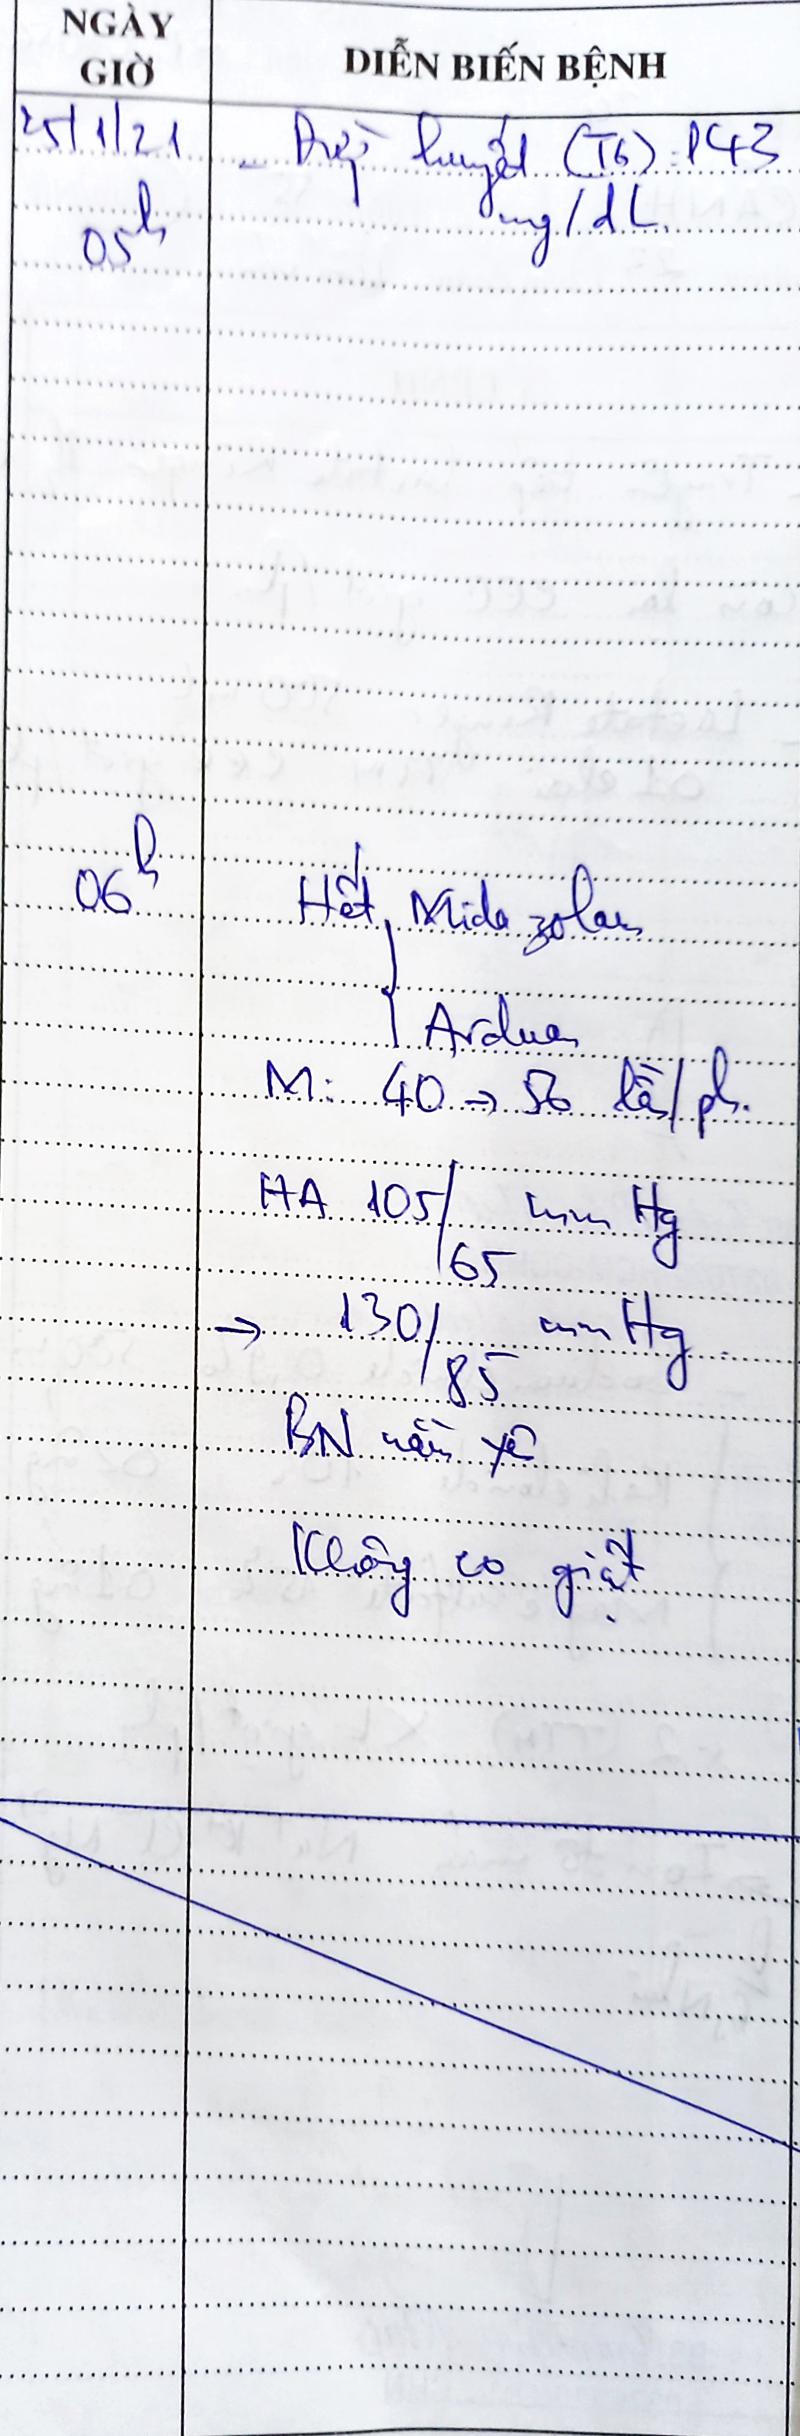 NGÀY
GIỜ
DIỄN BIẾN BỆNH
25/1/21 - Đường huyết (T6): 143
mg/dL.
05h
06h Hết Midazolam
Arduan
M: 40 → 56 lần/ph.
HA 105/65 mmHg
→ 130/85 mmHg
BN nằm yên
Không co giật